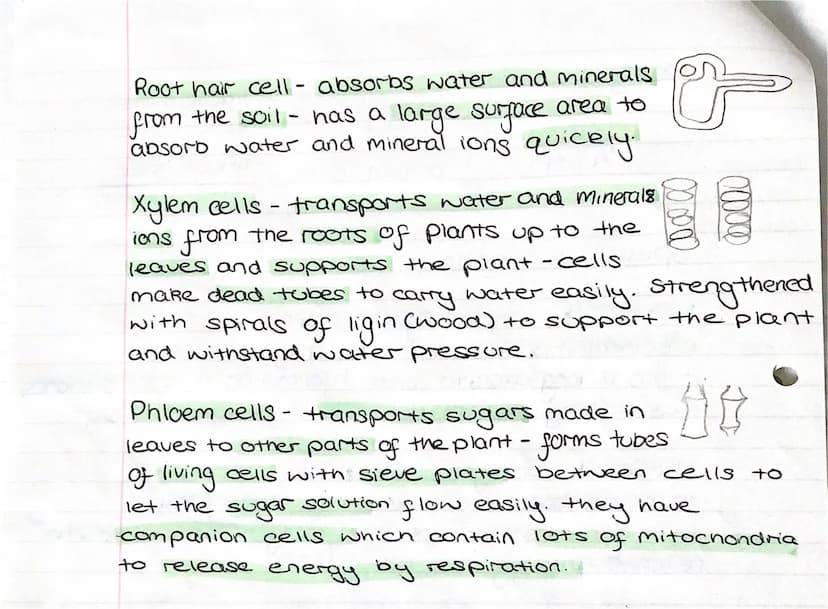 Root hair cell - absorbs water and minerals
from the soil - has a large surface area to
absorb water and mineral ions quickly.
Xylem cells - transports water and minerals
ions from the roots of plants up to the
leaves and supports the plant - cells
make dead tubes to carry water easily. Strengthened
with spirals of ligin (wood) to support the plant
and withstand water pressure.
Phloem cells - transports sugars made in
leaves to other parts of the plant - forms tubes
of living cells with sieve plates between cells to
let the sugar solution flow easily. they have
companion cells which contain lots of mitocnondria
to release energy by respiration.